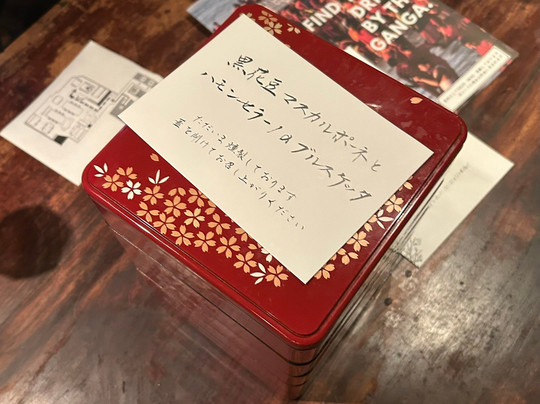 黒花豆マスカルポーネと
ハモンセラーノのブルスケッタ
ただいま燻製しております
蓋を開けてお召し上がりください
FIND
BY TH
GANGA